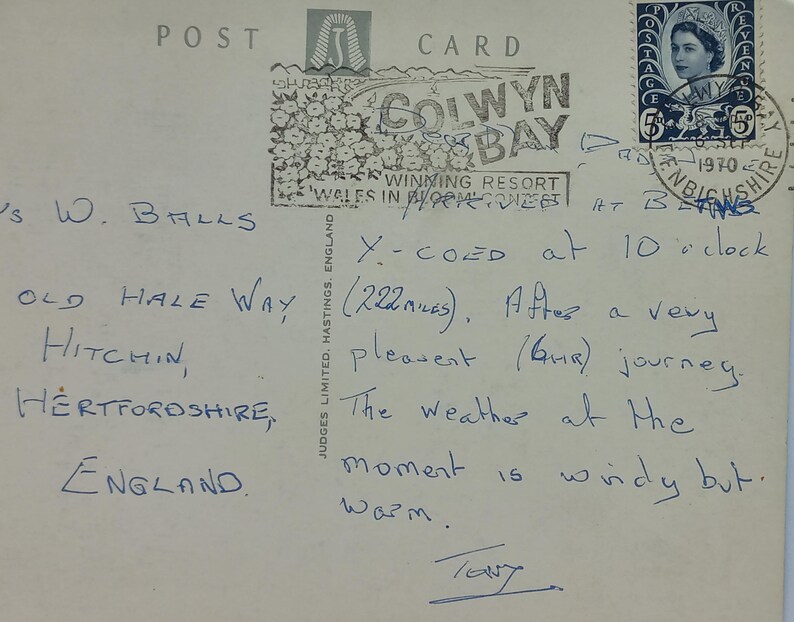 POST CARD
POSTAGE REVENUE
5D 5D
COLWYN
BAY
WINNING RESORT
'WALES IN BLOOM' CONTEST
COLWYN BAY
SEP
1970
DENBIGHSHIRE
JUDGES LIMITED. HASTINGS. ENGLAND
'S W. BALLS
OLD HALE WAY,
HITCHIN,
HERTFORDSHIRE,
ENGLAND.
Dear
ARRIVED AT BETWS
Y-COED at 10 o'clock
(222 MILES). After a very
pleasent (6HR) journey.
The weather at the
moment is windy but
warm.
Tony